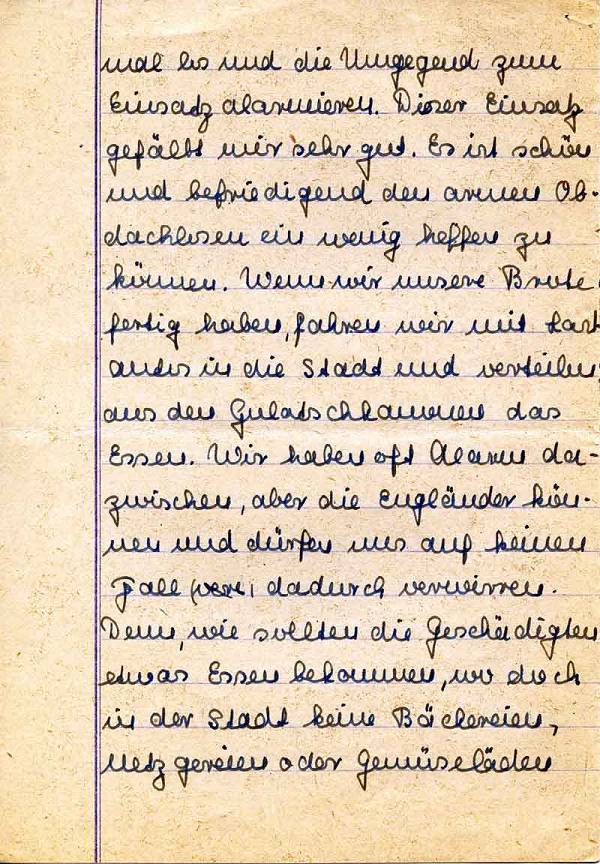 mal los und die Umgegend zum
Einsatz alarmieren. Dieser Einsatz
gefällt mir sehr gut. Es ist schön
und befriedigend den armen Ob-
dachlosen ein wenig helfen zu
können. Wenn wir unsere Brote
fertig haben, fahren wir mit Last
autos in die Stadt und verteilen
aus den Gulatschkannonen das
Essen. Wir haben oft Alarm da-
zwischen, aber die Engländer kön-
nen und dürfen uns auf keinen
Fall dadurch verwirren.
Denn, wie sollten die Geschädigten
etwas Essen bekommen, wo doch
in der Stadt keine Bäckereien,
Metzgereien oder Gemüseläden